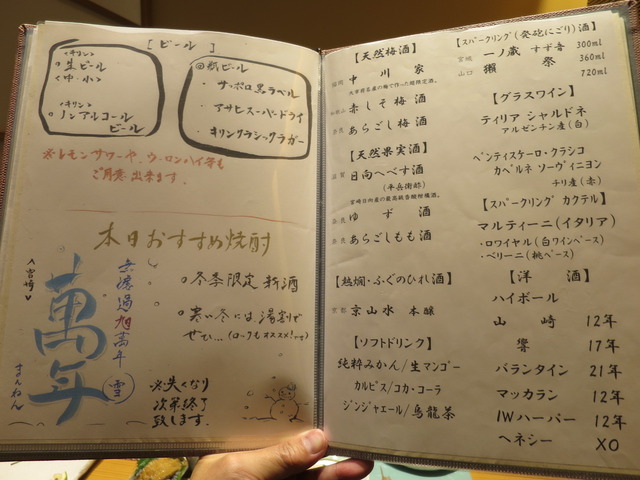 [ビール]
<キリン>
○生ビール
<中・小>
<キリン>
○ノンアルコール
ビール
◎瓶ビール
・サッポロ黒ラベル
・アサヒスーパードライ
・キリンクラシックラガー
※レモンサワーや、ウーロンハイ等も
ご用意出来ます。
本日おすすめ焼酎
<宮崎>
萬年
まんねん
無濾過旭萬年
雪
○冬季限定新酒
○寒い冬には湯割で
ぜひ…(ロックもオススメ!)
※失くなり
次第終了
致します。
【天然梅酒】
福岡 中川家
赤しそ梅酒
奈良 あらごし梅酒
【天然果実酒】
滋賀 日向へべす酒
(平兵衛酢)
宮崎日向産の最高級香酸柑橘酒。
奈良 ゆず酒
奈良 あらごしもも酒
【熱燗・ふぐのひれ酒】
京都 京山水 本醸
【ソフトドリンク】
純粋みかん/生マンゴー
カルピス/コカ・コーラ
ジンジャエール/烏龍茶
【スパークリング(発砲にごり)酒】
宮城 一ノ蔵 すず音 300ml
山口 獺祭 360ml
720ml
【グラスワイン】
ティリア シャルドネ
アルゼンチン産(白)
ベンティスケーロ・クラシコ
カベルネ ソーヴィニヨン
チリ産(赤)
【スパークリング カクテル】
マルティーニ(イタリア)
・ロワイヤル(白ワインベース)
・ベリーニ(桃ベース)
【洋酒】
ハイボール
山崎 12年
響 17年
バランタイン 21年
マッカラン 12年
IWハーパー 12年
ヘネシー XO